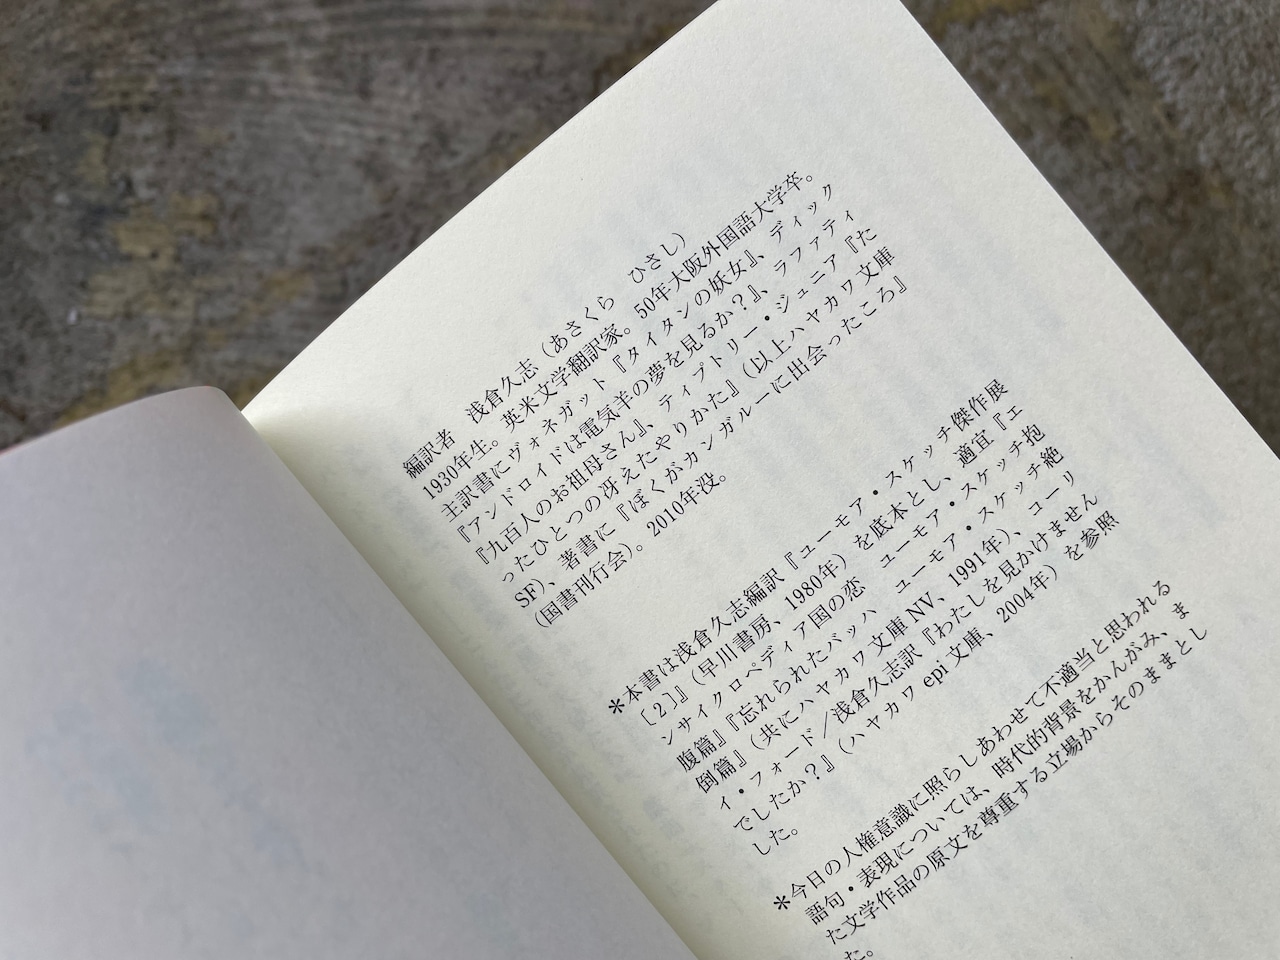 編訳者　浅倉久志（あさくら　ひさし）
1930年生。英米文学翻訳家。50年大阪外国語大学卒。
主訳書にヴォネガット『タイタンの妖女』、ディック
『アンドロイドは電気羊の夢を見るか？』、ラファティ
『九百人のお祖母さん』、ティプトリー・ジュニア『た
ったひとつの冴えたやりかた』（以上ハヤカワ文庫
SF）、著書に『ぼくがカンガルーに出会ったころ』
（国書刊行会）。2010年没。
＊本書は浅倉久志編訳『ユーモア・スケッチ傑作展
［2］』（早川書房、1980年）を底本とし、適宜『エ
ンサイクロペディア国の恋　ユーモア・スケッチ抱
腹篇』『忘れられたバッハ　ユーモア・スケッチ絶
倒篇』（共にハヤカワ文庫NV、1991年）、コーリ
イ・フォード／浅倉久志訳『わたしを見かけません
でしたか？』（ハヤカワepi文庫、2004年）を参照
した。
＊今日の人権意識に照らしあわせて不適当と思われる
語句・表現については、時代的背景をかんがみ、ま
た文学作品の原文を尊重する立場からそのままとし
た。